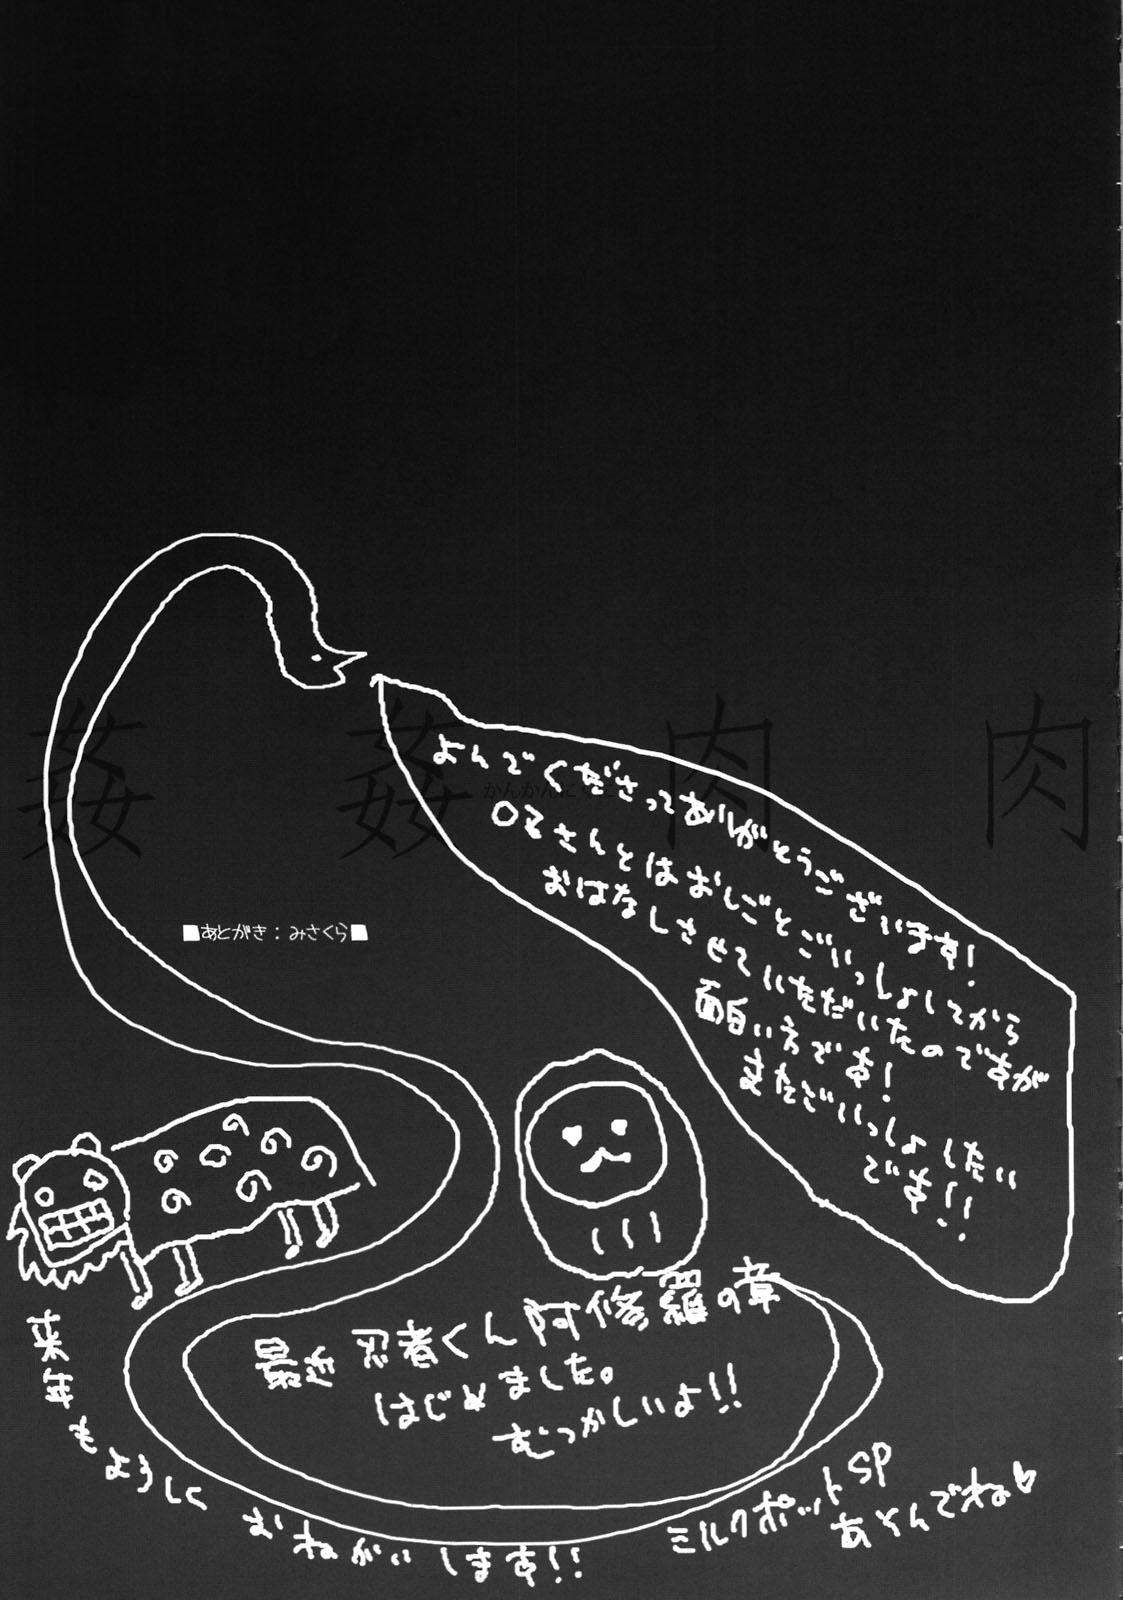 姦 姦 肉 肉
よんでくださってありがとうございます!
さんとはおしごとごいっしょしてから
おはなしさせていただいたのですが
面白い方です!
またごいっしょしたい
です!!
■あとがき:みさくら■
最近 忍者くん 阿修羅の章
はじめました。
むつかしいよ!!
来年もよろしく おねがいします!!
ミルクポットSP
あそんでね♥